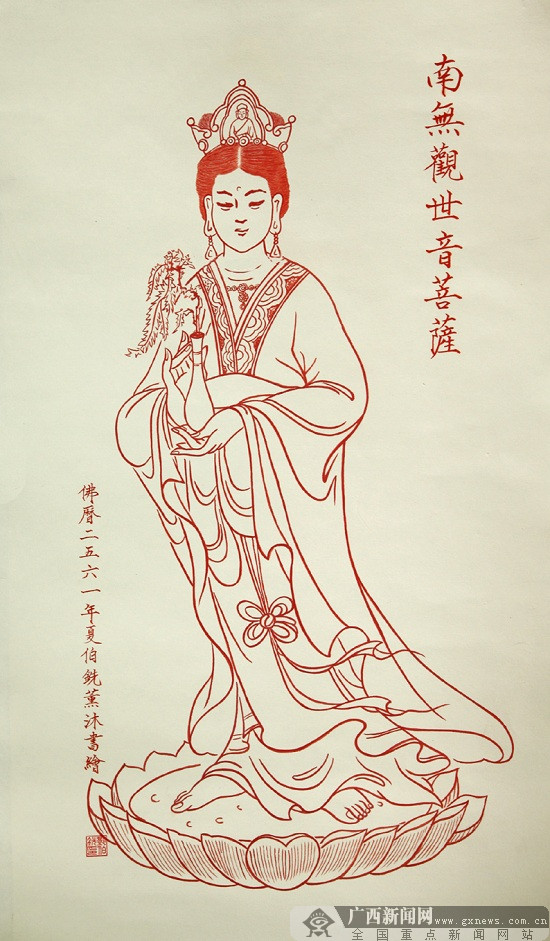 南無觀世音菩薩
佛曆二五六一年夏伯銑薰沐書繪
广西新闻网
www.gxnews.com.cn
全国重点新闻网站